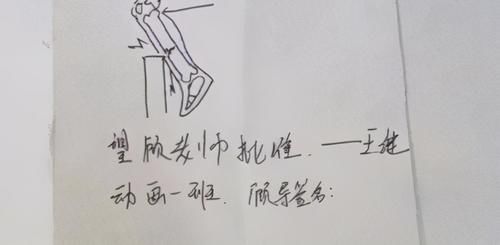 望顾老师批准.——王继
动画一班. 顾导签名: